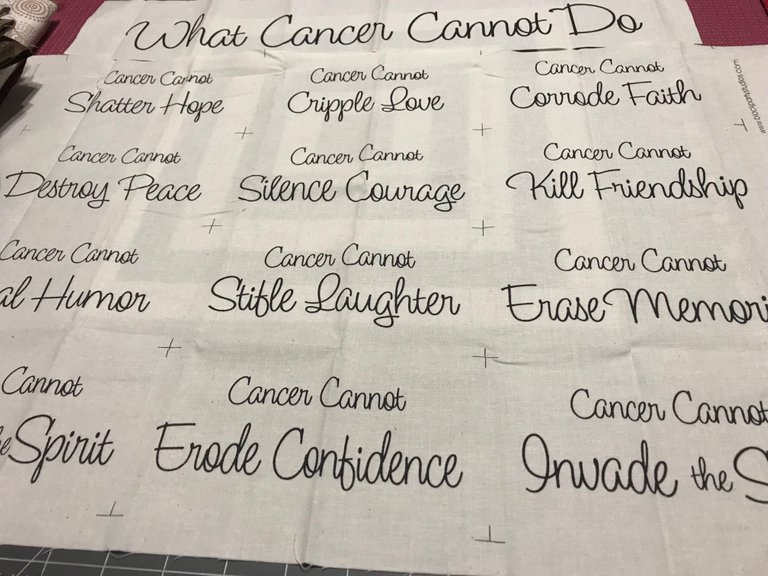 What Cancer Cannot Do
Cancer Cannot
Shatter Hope
Cancer Cannot
Cripple Love
Cancer Cannot
Corrode Faith
Cancer Cannot
Destroy Peace
Cancer Cannot
Silence Courage
Cancer Cannot
Kill Friendship
Cancer Cannot
al Humor
Cancer Cannot
Stifle Laughter
Cancer Cannot
Erase Memori
Cannot
Spirit
Cancer Cannot
Erode Confidence
Cancer Cannot
Invade the S